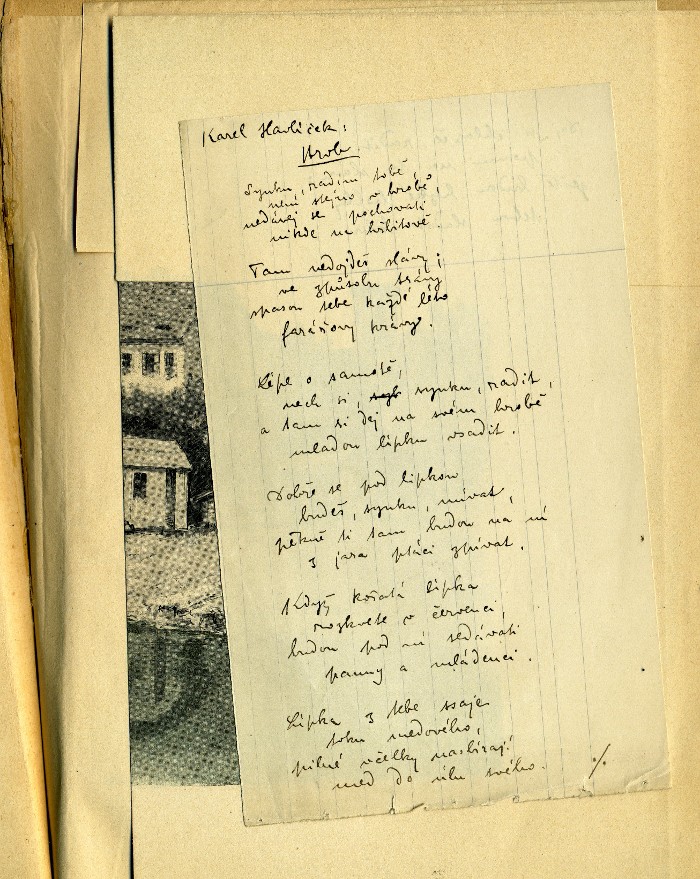 Karel Havlíček:
Hrob
Synku, radím tobě,
není stejno v hrobě,
nedávej se pochovati
nikde na hřbitově.
Tam nedojdeš slávy;
ve způsobu trávy
spasou tebe každé léto
farářovy krávy.
Lépe o samotě,
nech si, synku, radit,
a tam si dej na svém hrobě
mladou lípku vsadit.
Dobře se pod lipkou
budeš, synku, mívat,
pěkně ti tam budou na ní
z jara ptáci zpívat.
Když košatá lipka
rozkvete v červenci,
budou pod ní sedávati
panny a mládenci.
Lipka z tebe ssaje
toku medového,
pilné včelky nasbírají
med do úlu svého.
./.